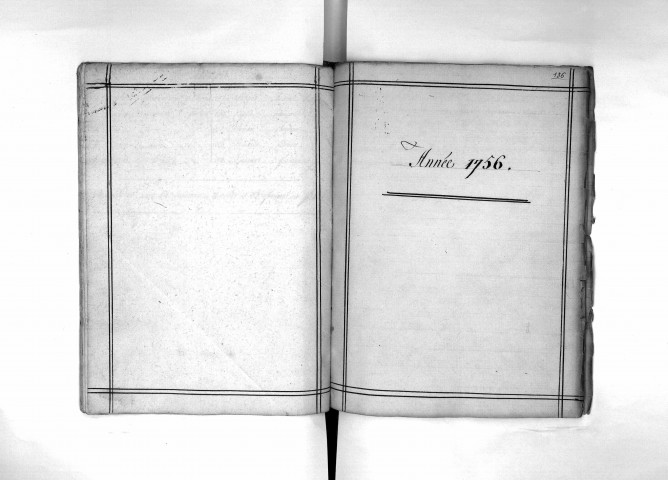 136
Année 1756.